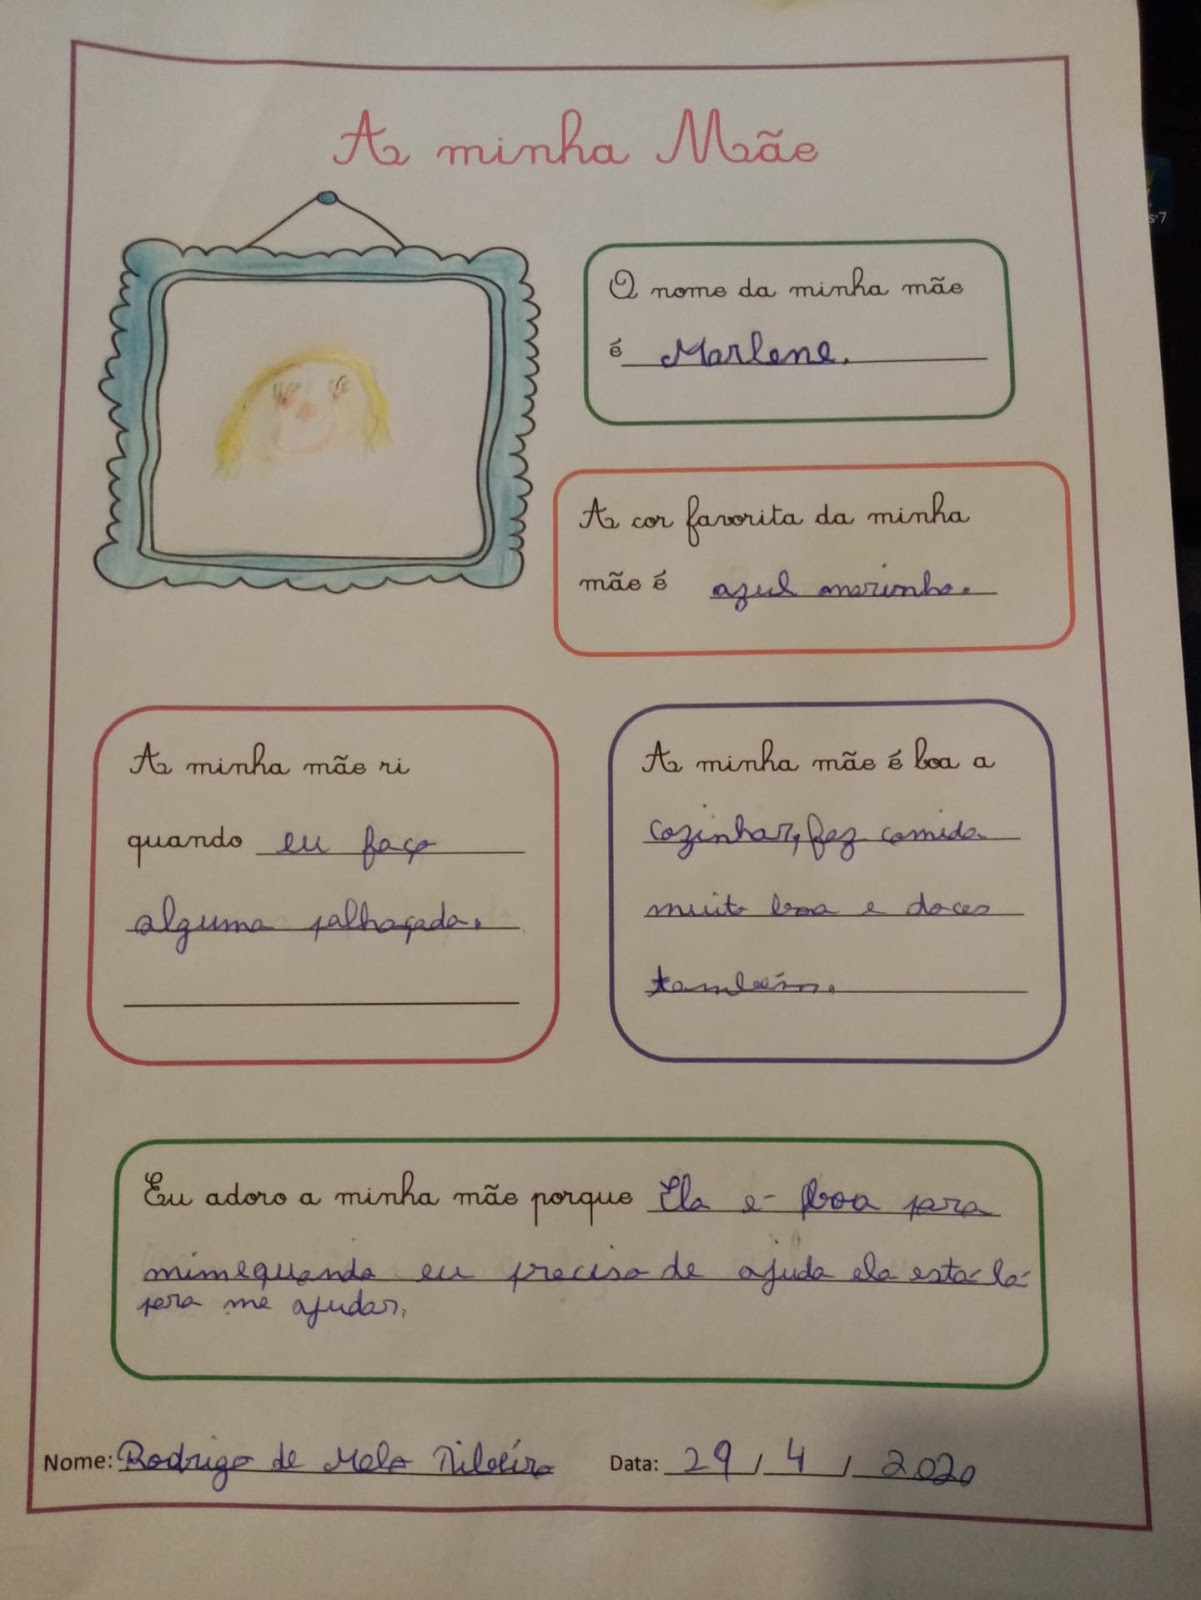 A minha Mãe
O nome da minha mãe
é Marlene.
A cor favorita da minha
mãe é azul marinho.
A minha mãe ri
quando eu faço
alguma palhaçada.
A minha mãe é boa a
cozinhar, faz comida
muito boa e doces
também.
Eu adoro a minha mãe porque Ela é boa para
mim e quando eu preciso de ajuda ela está lá
para me ajudar.
Nome: Rodrigo de Melo Ribeiro Data: 29 / 4 / 2020
s-7